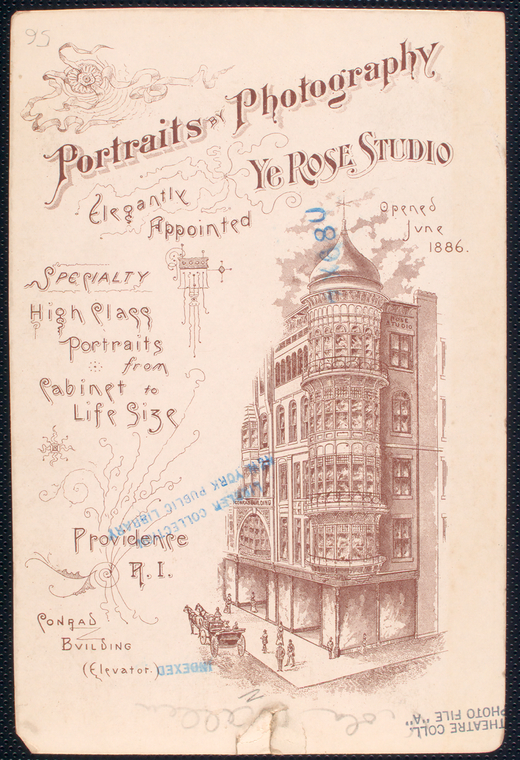 95
Portraits BY Photography
Ye ROSE STUDIO
Elegantly
Appointed
Opened
June
1886.
SPECIALTY
High Class
Portraits
from
Cabinet to
Life Size
ROSE
STUDIO
CONRAD BUILDING
Providence
R. I.
CONRAD
BUILDING
(Elevator.)
NEW YORK PUBLIC LIBRARY
COLLECTION
INDEXED
THEATRE COLL.
PHOTO FILE "A"